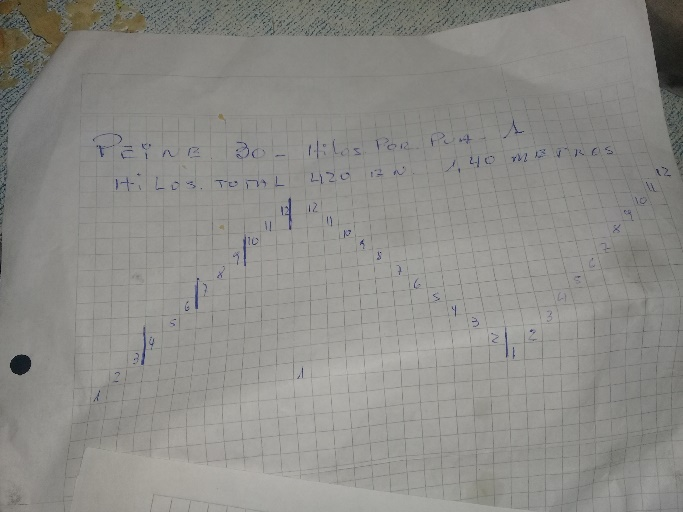 PEINE 30 - Hilos POR PUA - 1
HiLOS. TOTAL 420 EN 1,40 METROS
1 2 3 4 5 6 7 8 9 10 11 12 12 11 10 9 8 7 6 5 4 3 2 1 2 3 4 5 6 7 8 9 10 11 12
1